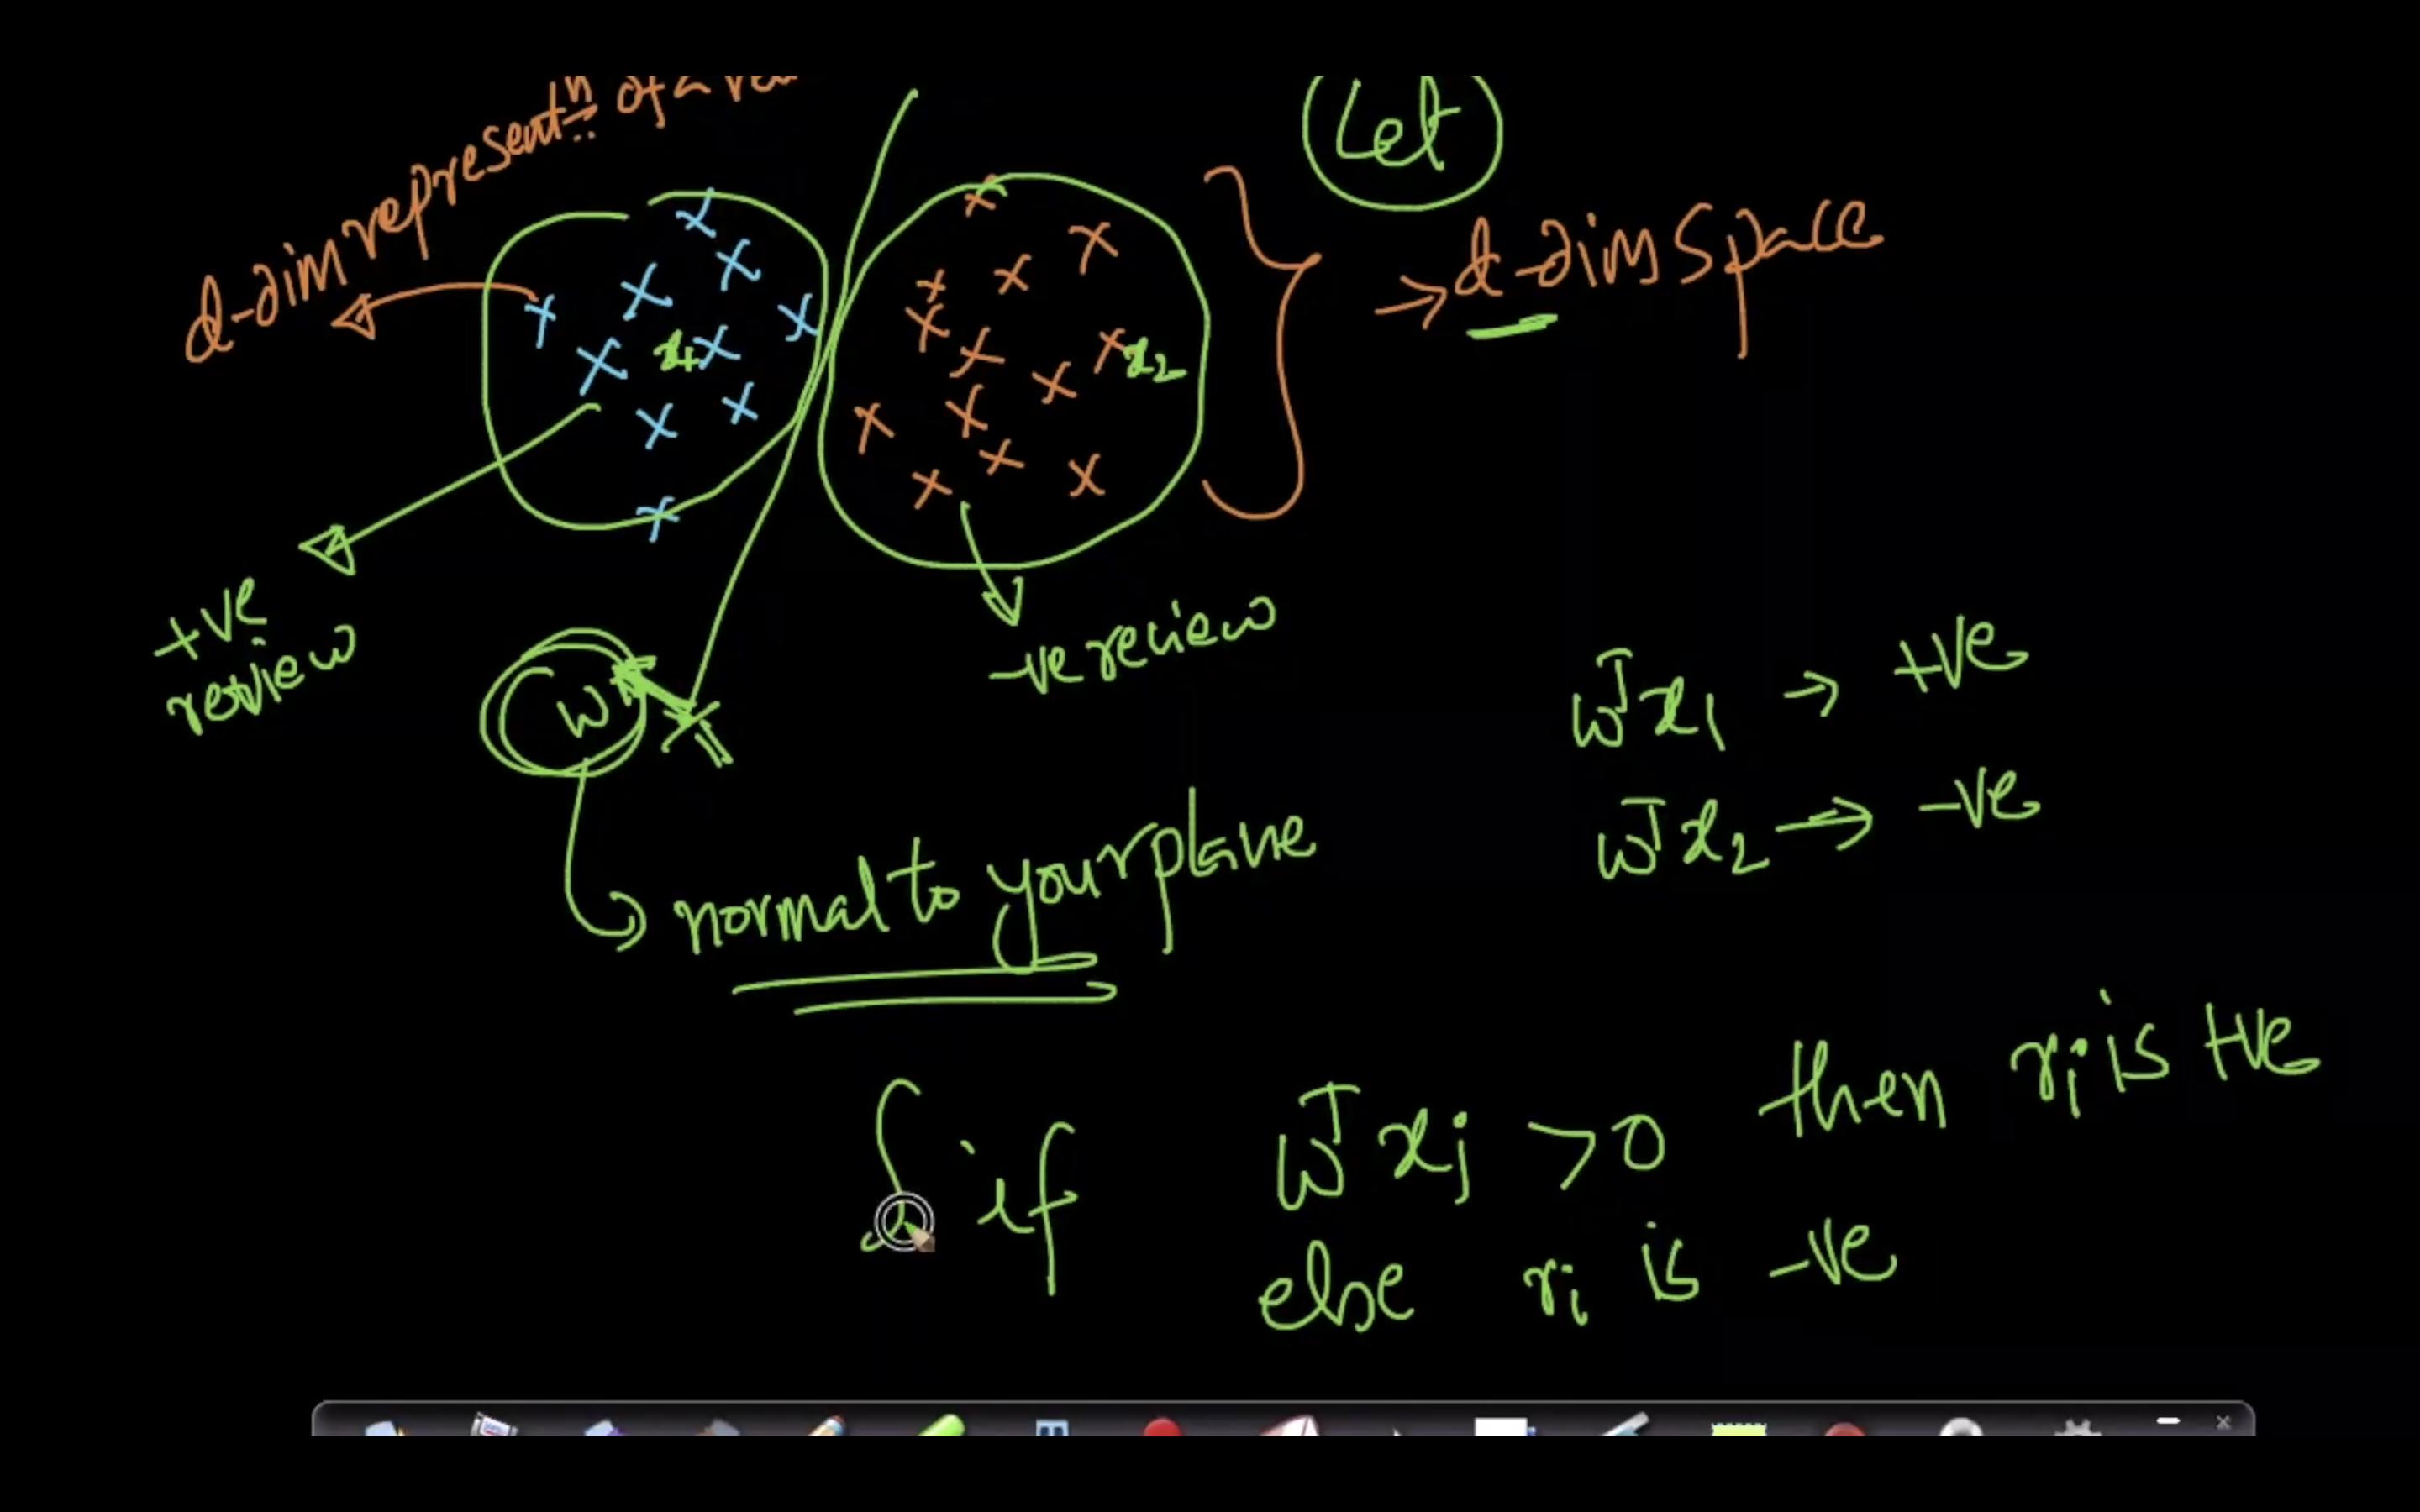 d-dim represent<sup>n</sup> of a
Let
→ d-dim space
x1
x2
+ve
review
-ve review
w
normal to your plane
wᵀx1 → +ve
wᵀx2 → -ve
if wᵀxi >0 then ri is +ve
else ri is -ve